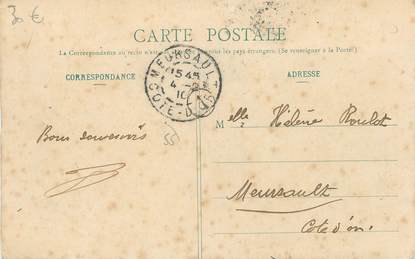 30 €
CARTE POSTALE
La Correspondance au recto n'est pas les pays étrangers. (Se renseigner à la Poste)
CORRESPONDANCE
ADRESSE
MEURSAULT
15 45
4
10
CÔTE-D'OR
Melle Hélène Roulot
Bons souvenirs
55
Meursault
Côte d'or.